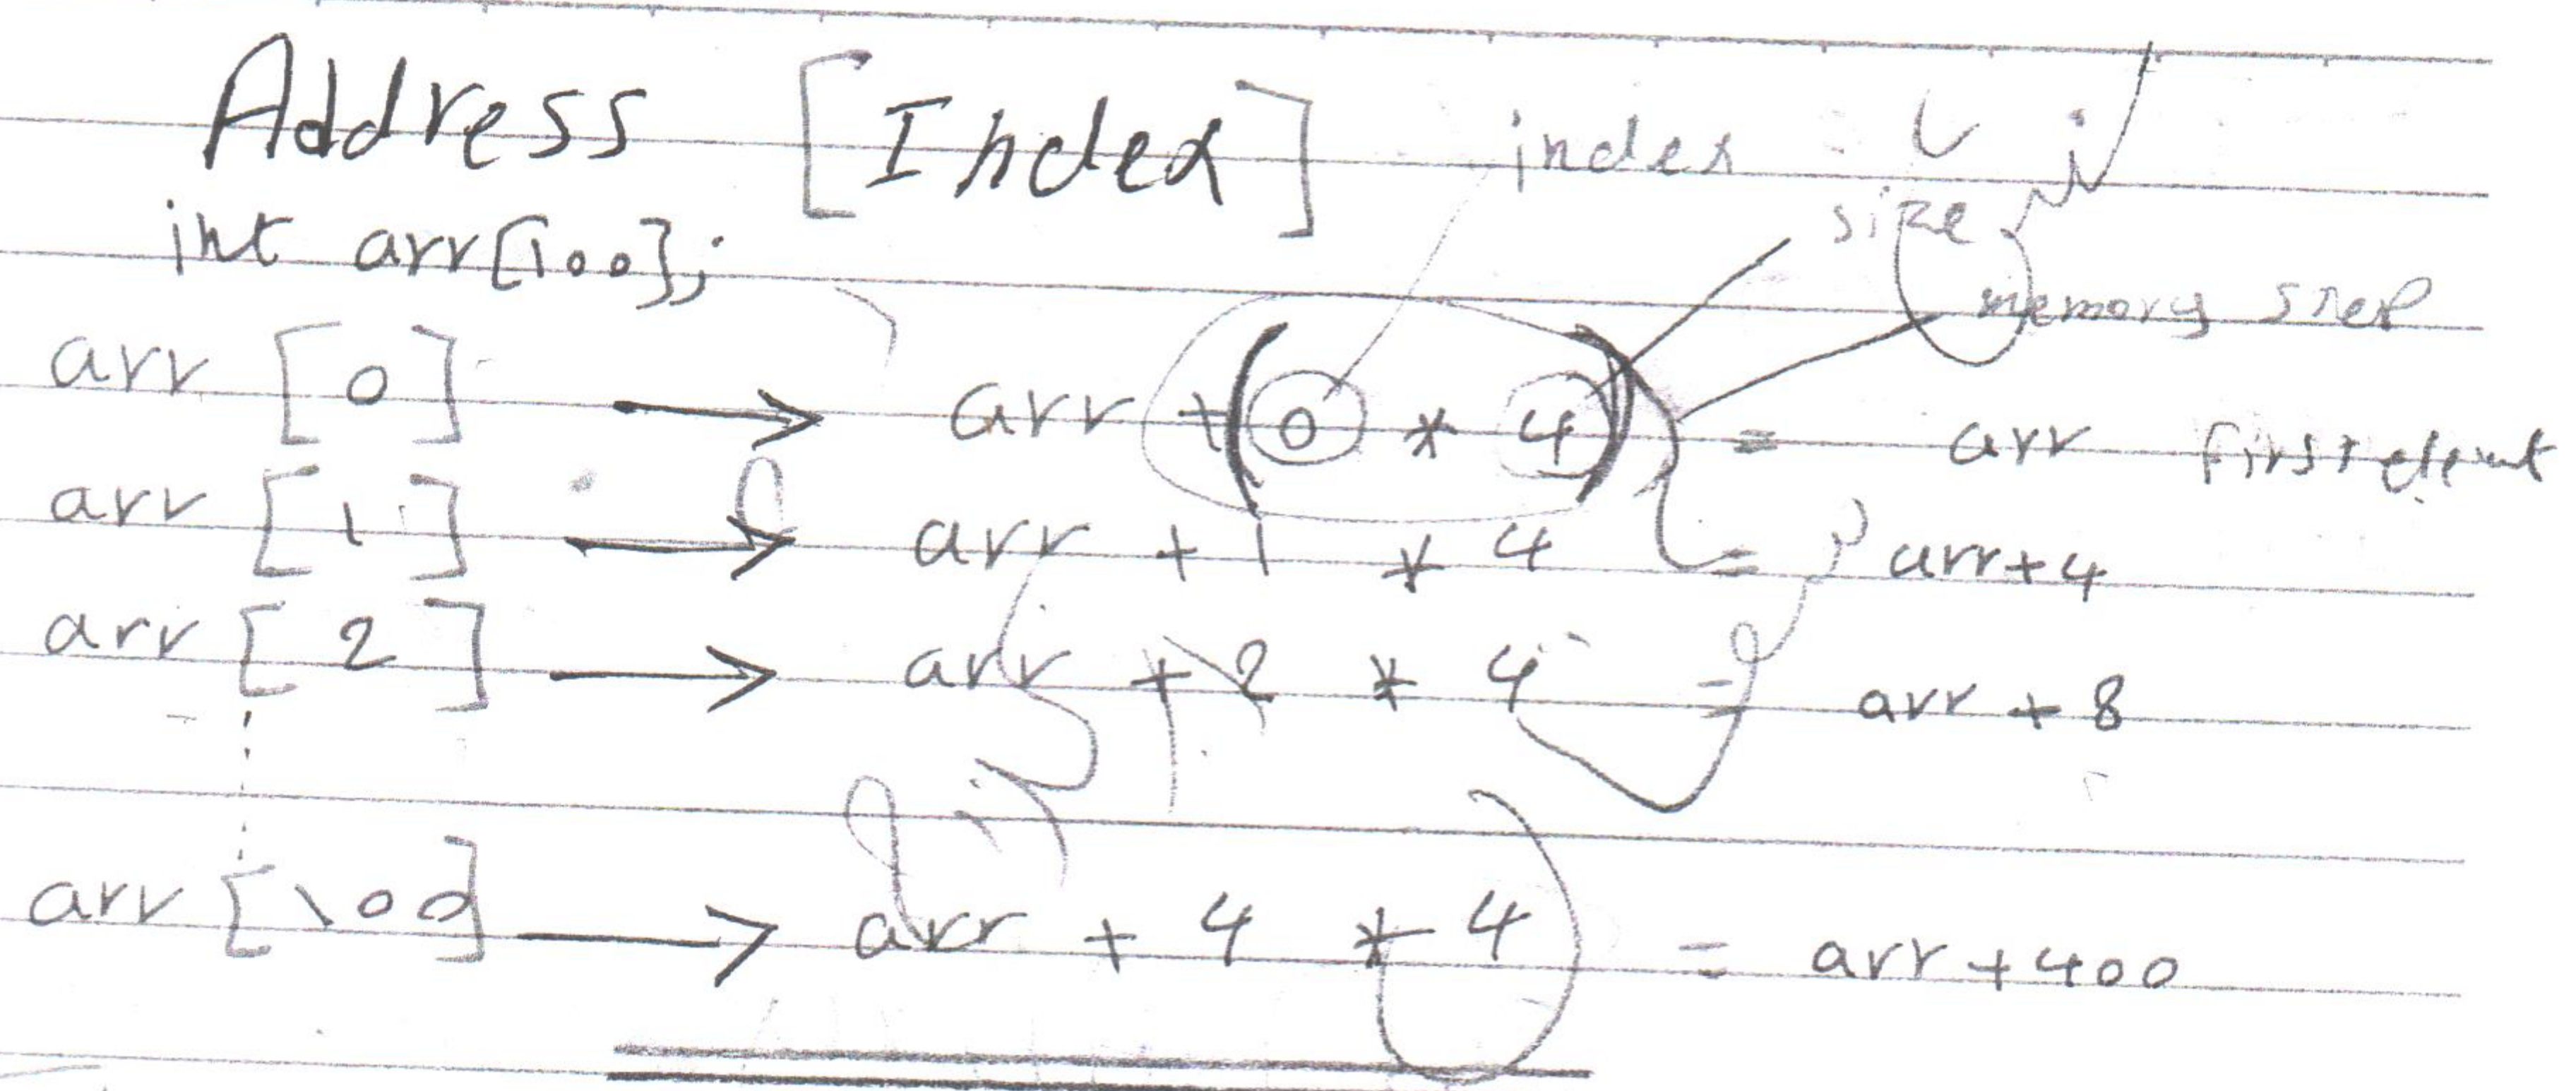 Address [Index] index
int arr[100]; size
memory step
arr [0] → arr + (0 * 4) = arr first elemnt
arr [1] → arr + 1 * 4 = arr+4
arr [2] → arr + 2 * 4 = arr + 8
arr [100] → arr + 4 * 4 = arr + 400